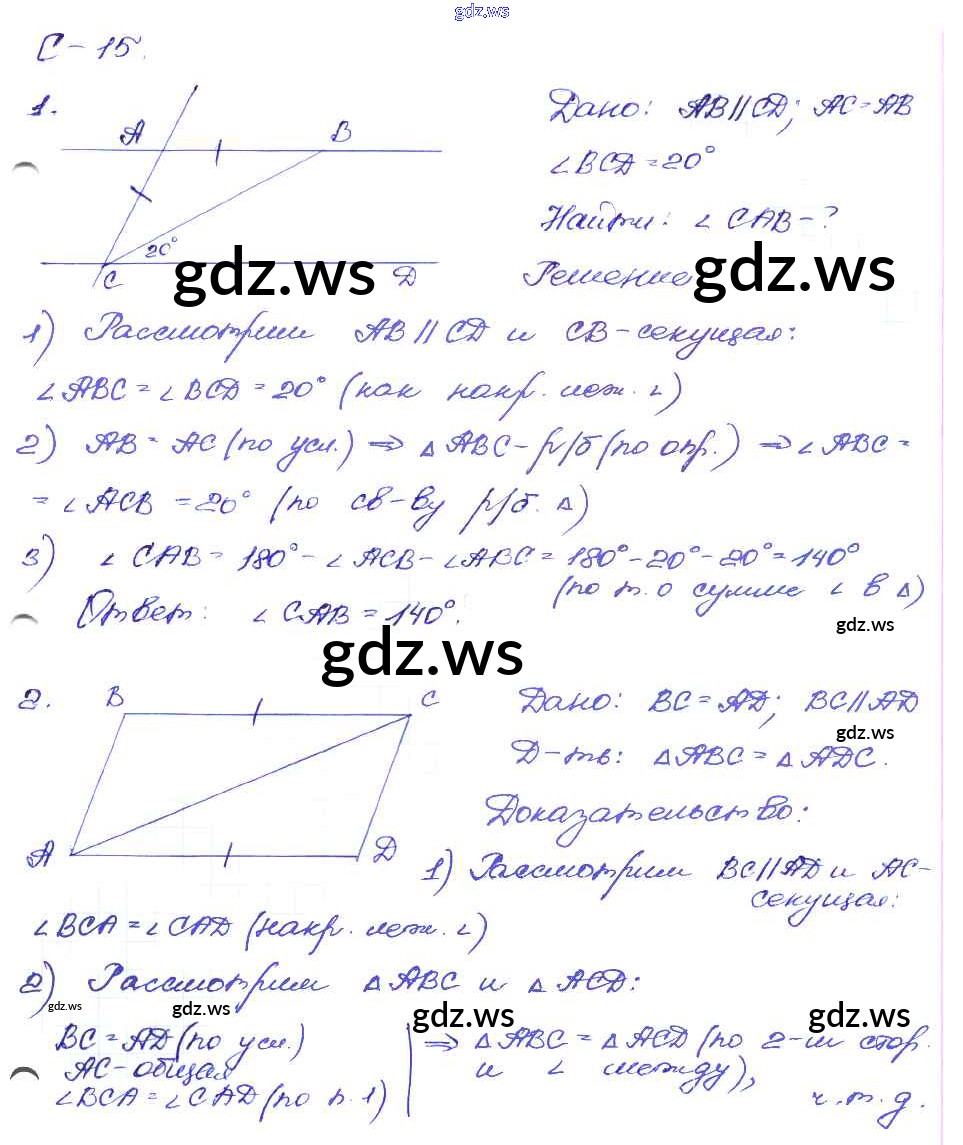 gdz.ws
С-15.
1.
A B
20°
C D
Дано: AB//CD; AC=AB
∠BCD=20°
Найти: ∠CAB-?
Решение
gdz.ws gdz.ws
1) Рассмотрим AB//CD и CB-секущая:
∠ABC=∠BCD=20° (как накр. леж. ∠)
2) AB=AC (по усл.) ⇒ △ABC-р/б (по опр.) ⇒ ∠ABC=
=∠ACB=20° (по св-ву р/б. △)
3) ∠CAB=180°-∠ACB-∠ABC=180°-20°-20°=140°
(по т. о сумме ∠ в △)
Ответ: ∠CAB=140°.
gdz.ws
gdz.ws
2.
B C
A D
Дано: BC=AD; BC//AD
gdz.ws
Д-ть: △ABC=△ADC.
Доказательство:
1) Рассмотрим BC//AD и AC-
секущая:
∠BCA=∠CAD (накр. леж. ∠)
2) Рассмотрим △ABC и △ACD:
gdz.ws gdz.ws gdz.ws gdz.ws
BC=AD (по усл.)
AC-общая
∠BCA=∠CAD (по п. 1)
⇒ △ABC=△ACD (по 2-м стор.
и ∠ между),
ч.т.д.